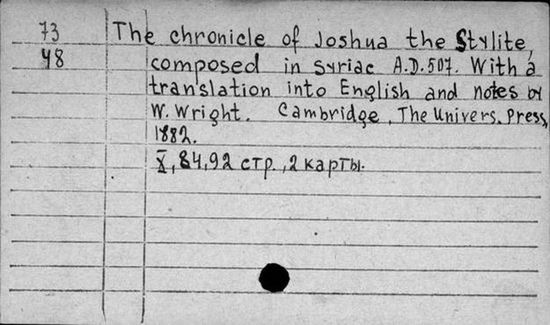 73 The chronicle of Joshua the Stylite,
48 composed in Syriac A.D. 507. With a
translation into English and notes by
W. Wright. Cambridge, The Univers. Press,
1882.
X, 84, 92 стр., 2 карты.